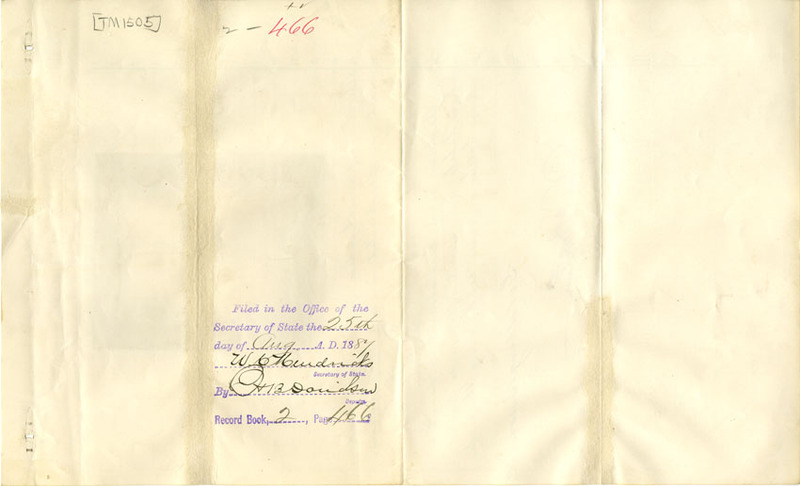 [TM1505]
2 - 466
Filed in the Office of the
Secretary of State the 25th
day of Aug A. D. 188
W C Hendricks
Secretary of State.
By H B Davidson
Deputy.
Record Book, 2, Page 466